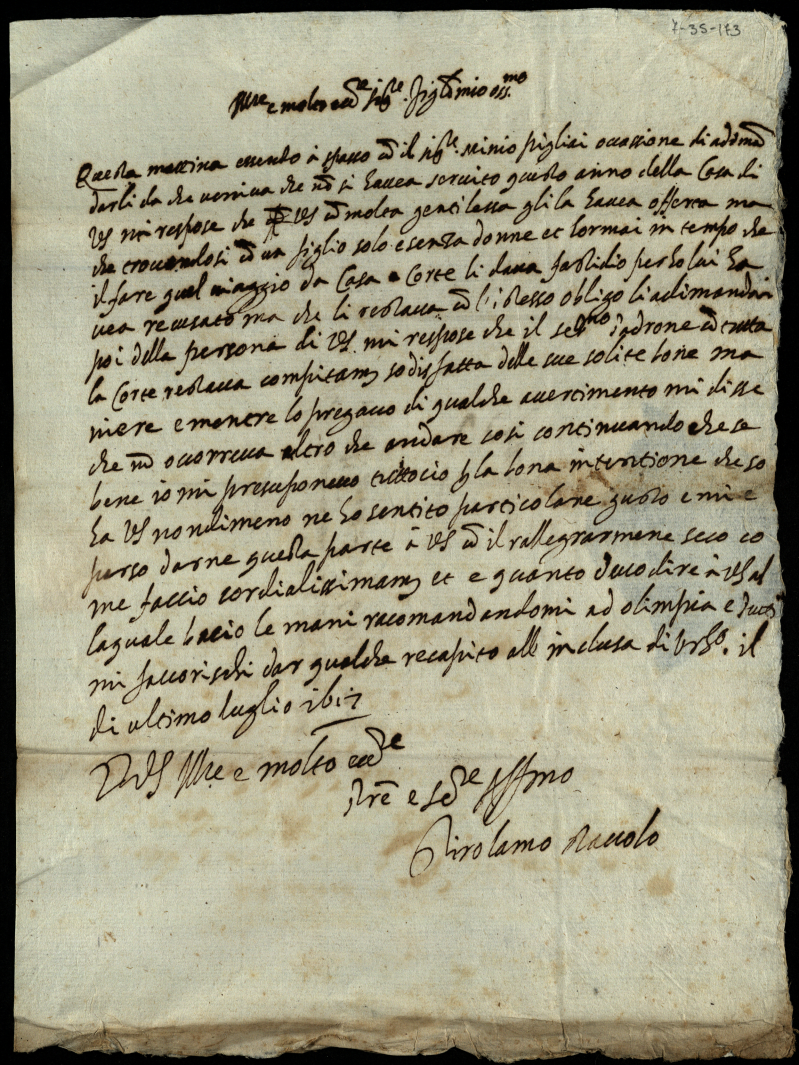 7-35-173
Ill.re e molto ecc.te sig.re sig.r mio oss.mo
Questa mattina essendo à spasso cō il sig.re pigliai occasione di adomā
darli da che veniva che nō si havea servito questo anno della Casa di
VS mi respose che VS cō molta gentilessa gli la havea offerta ma
che trovandosi cō un figlio solo e senza donne et hormai in tempo che
il fare quel viaggio da Casa a Corte li dava fastidio perho lui ha
vea recusato ma che li restava cō l'istesso obligo li adimandai
poi della persona di VS mi respose che il ser.mo Padrone cō tutta
la Corte restava compitam sodisfatta delle sue solite bone ma
niere e mentre lo pregavo di qualche avertimento mi disse
che nō occorreva altro che andare cosi continuando che se
bene io mi presuponevo tuttocio p la bona intentione che so
ha VS nondimeno ne ho sentito particolare gusto e mi e
parso darne questa parte à VS cō il rallegrarmene seco co
me faccio cordialissimam et e quanto devo dire à VS al
laquale bacio le mani racomandandomi ad olimpia e tutti
mi favorischi dar qualche recapito all inclusa di il
di ultimo luglio 1617
Di VS Ill.re e molto ecc.te
e se.re Aff.mo
Girolamo